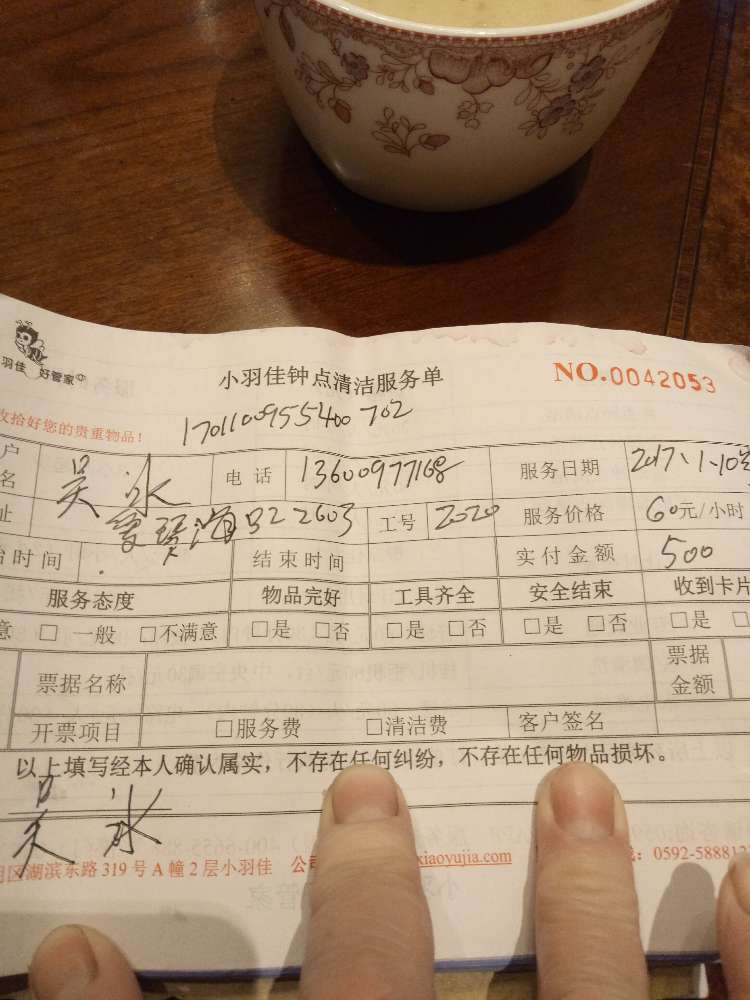 羽佳 好管家
小羽佳钟点清洁服务单 NO.0042053
收拾好您的贵重物品!
1701100955400702
户名 吴冰 电话 13600977168 服务日期 2017.1.10
址 海 322 2603 工号 2020 服务价格 60元/小时
始时间 结束时间 实付金额 500
服务态度 物品完好 工具齐全 安全结束 收到卡片
意 □ 一般 □不满意 □是 □否 □是 □否 □是 □否 □是
票据名称 票据金额
开票项目 □服务费 □清洁费 客户签名
以上填写经本人确认属实，不存在任何纠纷，不存在任何物品损坏。
吴冰
明区湖滨东路319号A幢2层小羽佳 公司 xiaoyujia.com 线：0592-588812